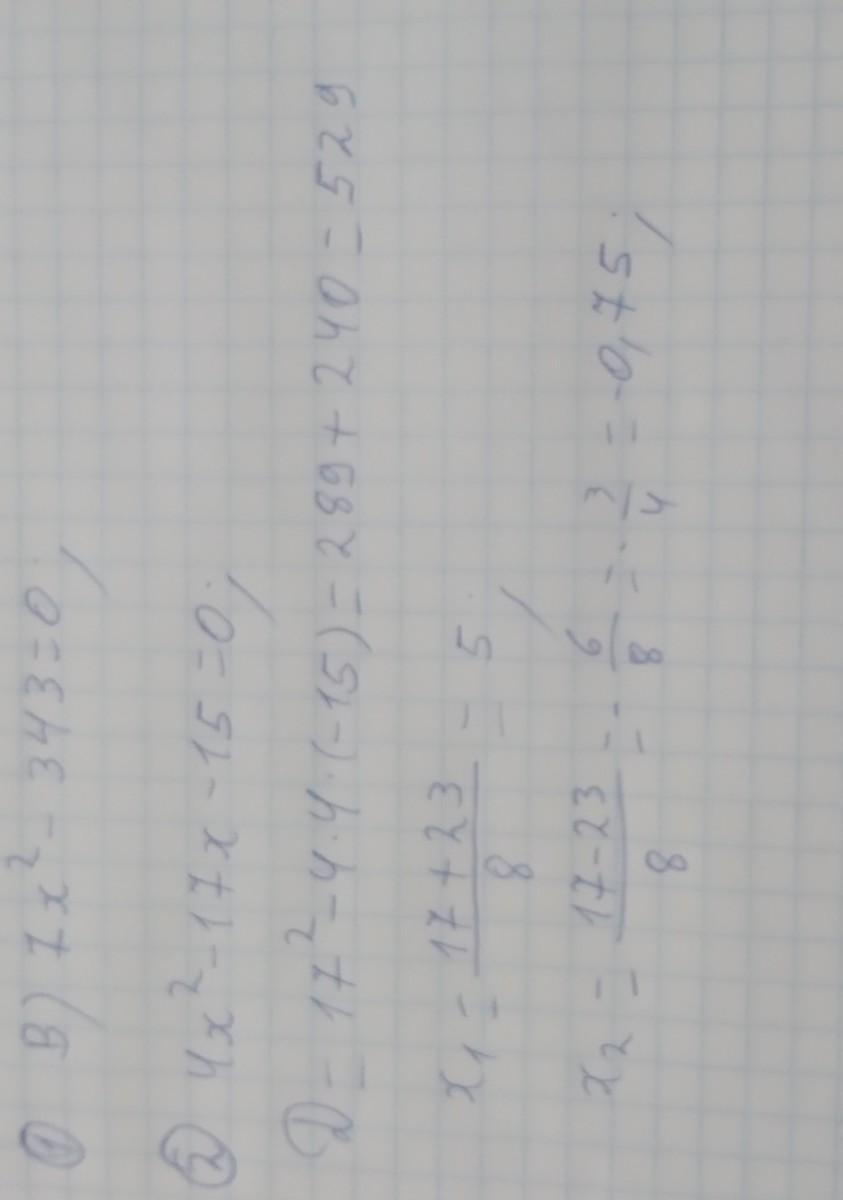 ① В) 7x² - 343 = 0;
② 4x² - 17x - 15 = 0;
D = 17² - 4·4·(-15) = 289 + 240 = 529
x₁ = (17 + 23)/8 = 5;
x₂ = (17 - 23)/8 = -6/8 = -3/4 = -0,75;